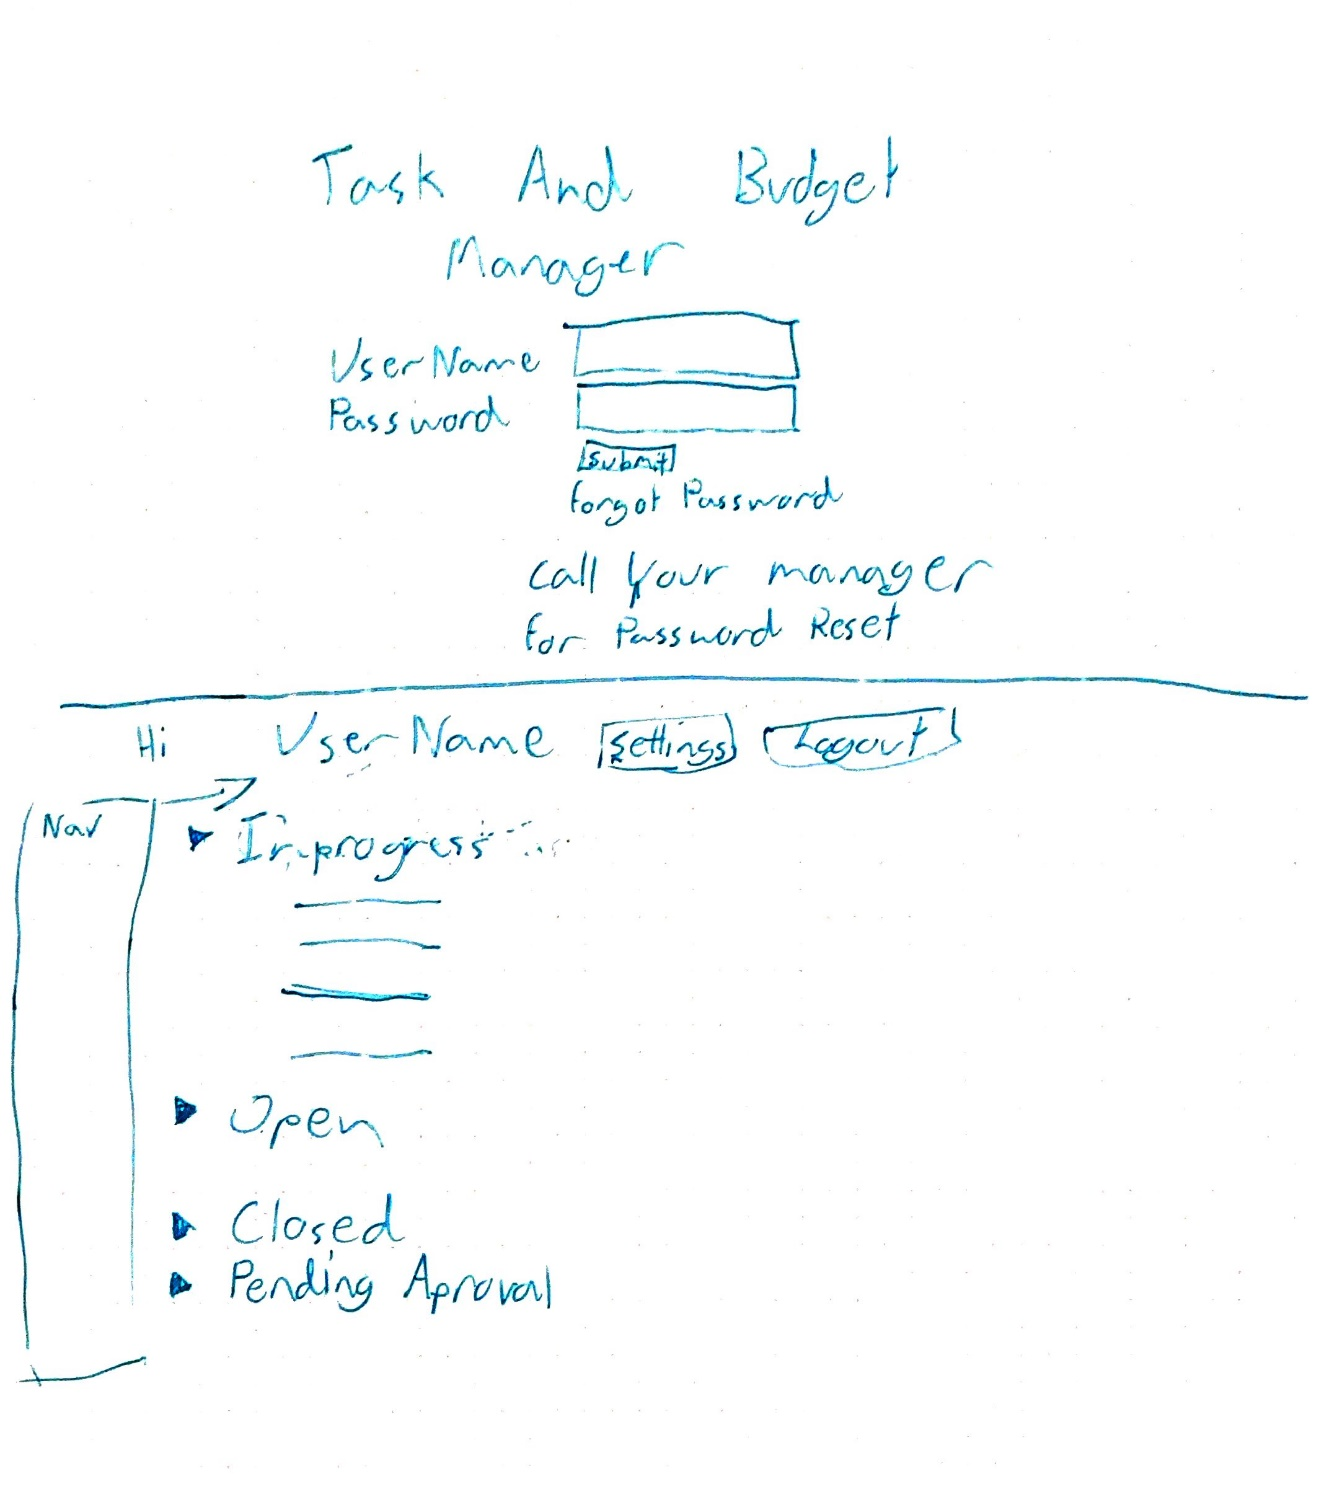 Task And Budget
Manager
UserName
Password
Submit
forgot Password
Call Your manager
for Password Reset
Hi UserName Settings Logout
Nav
In-progress
Open
Closed
Pending Aproval